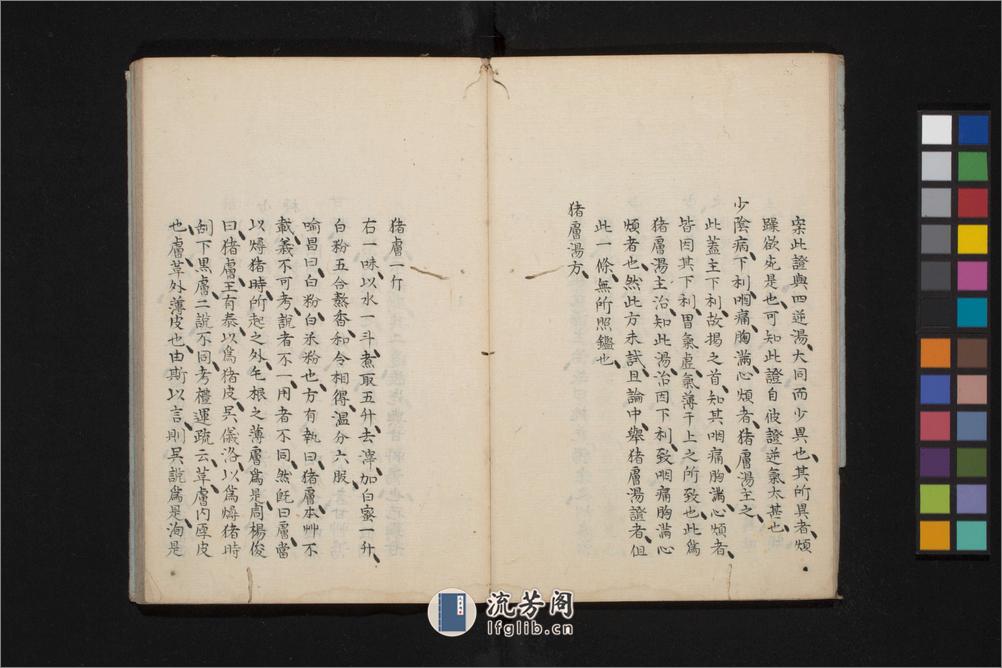 案此證與四逆湯大同而少異也其所異者煩
躁欲死是也可知此證自彼證逆氣太甚也
少陰病下利咽痛胸滿心煩者猪膚湯主之
此蓋主下利故揭之首知其咽痛胸滿心煩者
皆因其下利胃氣虛氣薄于上之所致也此為
猪膚湯主治知此湯治因下利致咽痛胸滿心
煩者也然此方未試且論中舉猪膚湯證者但
此一條無所照鑑也
猪膚湯方
猪膚一斤
右一味以水一斗煮取五升去滓加白蜜一升
白粉五合熬香和令相得温分六服
喻昌曰白粉白米粉也方有執曰猪膚本艸不
載義不可考說者不一用者不同然既曰膚當
以燖猪時所起之外毛根之薄膚為是周楊俊
曰猪膚王有泰以為猪皮吳儀洛以為燖猪時
刮下黑膚二說不同考禮運疏云革膚內厚皮
也膚革外薄皮也由斯以言則吳說為是洵是
流芳阁
lfglib.cn